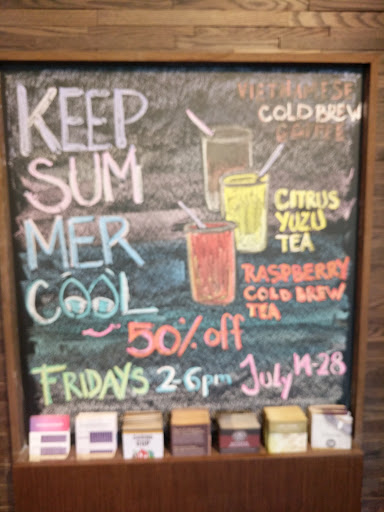 KEEP
SUM
MER
COOL
VIETNAMESE
COLD BREW
COFFEE
CITRUS
YUZU
TEA
RASPBERRY
COLD BREW
TEA
50% off
FRIDAYS 2-6pm July 14-28